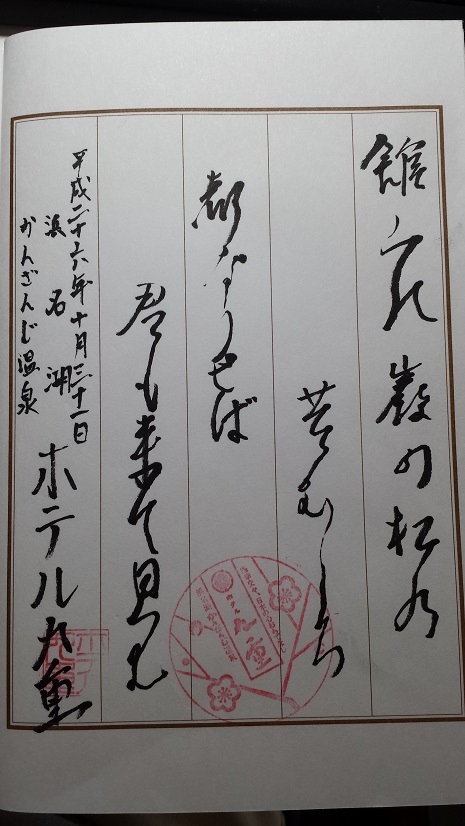 館山の巌の松乃
苔むしろ
都なりせば
君も来て見む
平成二十六年十月三十一日
浜名湖
かんざんじ温泉
ホテル九重
九重